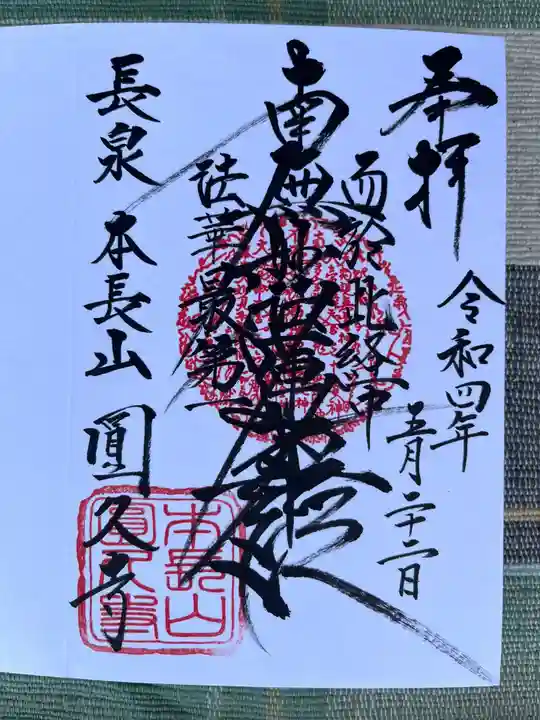 奉拝
令和四年
五月二十二日
而於此経中
南無妙法蓮華経
法華最第一
長泉 本長山 圓久寺
本長山
圓久寺